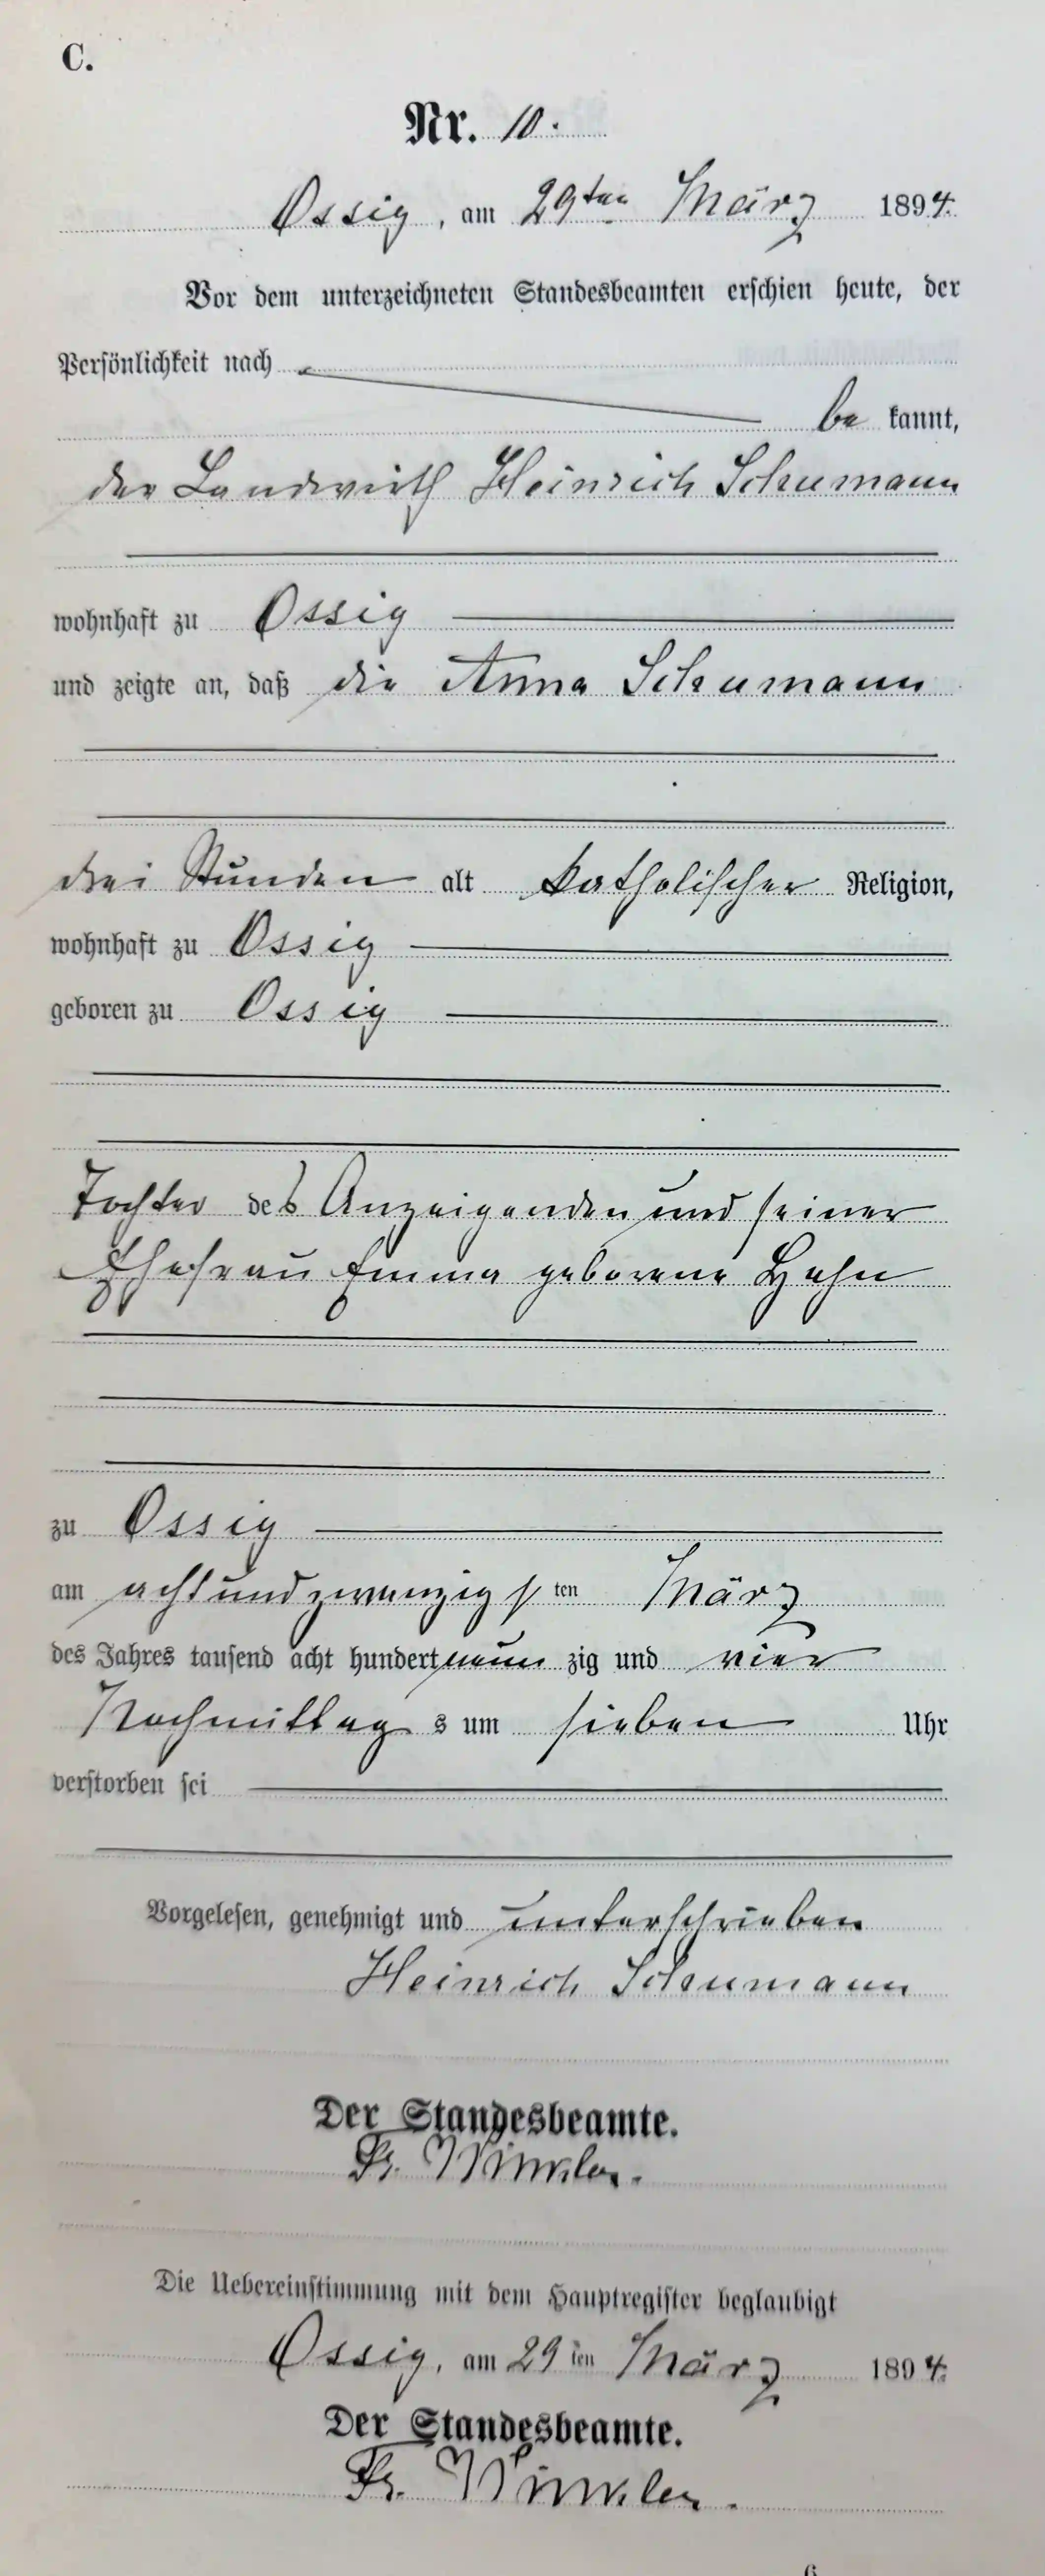 C.
Nr. 10.
Ossig, am 29ten März 1894.
Vor dem unterzeichneten Standesbeamten erschien heute, der
Persönlichkeit nach
be kannt,
der Landwirth Heinrich Schumann
wohnhaft zu Ossig
und zeigte an, daß die Anna Schumann
drei Stunden alt katholischer Religion,
wohnhaft zu Ossig
geboren zu Ossig
Tochter des Anzeigenden und seiner
Ehefrau Emma geborene Hahn
zu Ossig
am achtundzwanzigsten März
des Jahres tausend acht hundert neun zig und vier
Nachmittags um sieben Uhr
verstorben sei
Vorgelesen, genehmigt und unterschrieben
Heinrich Schumann
Der Standesbeamte.
Fr. Winkler.
Die Uebereinstimmung mit dem Hauptregister beglaubigt
Ossig, am 29ten März 1894.
Der Standesbeamte.
Fr. Winkler.
6